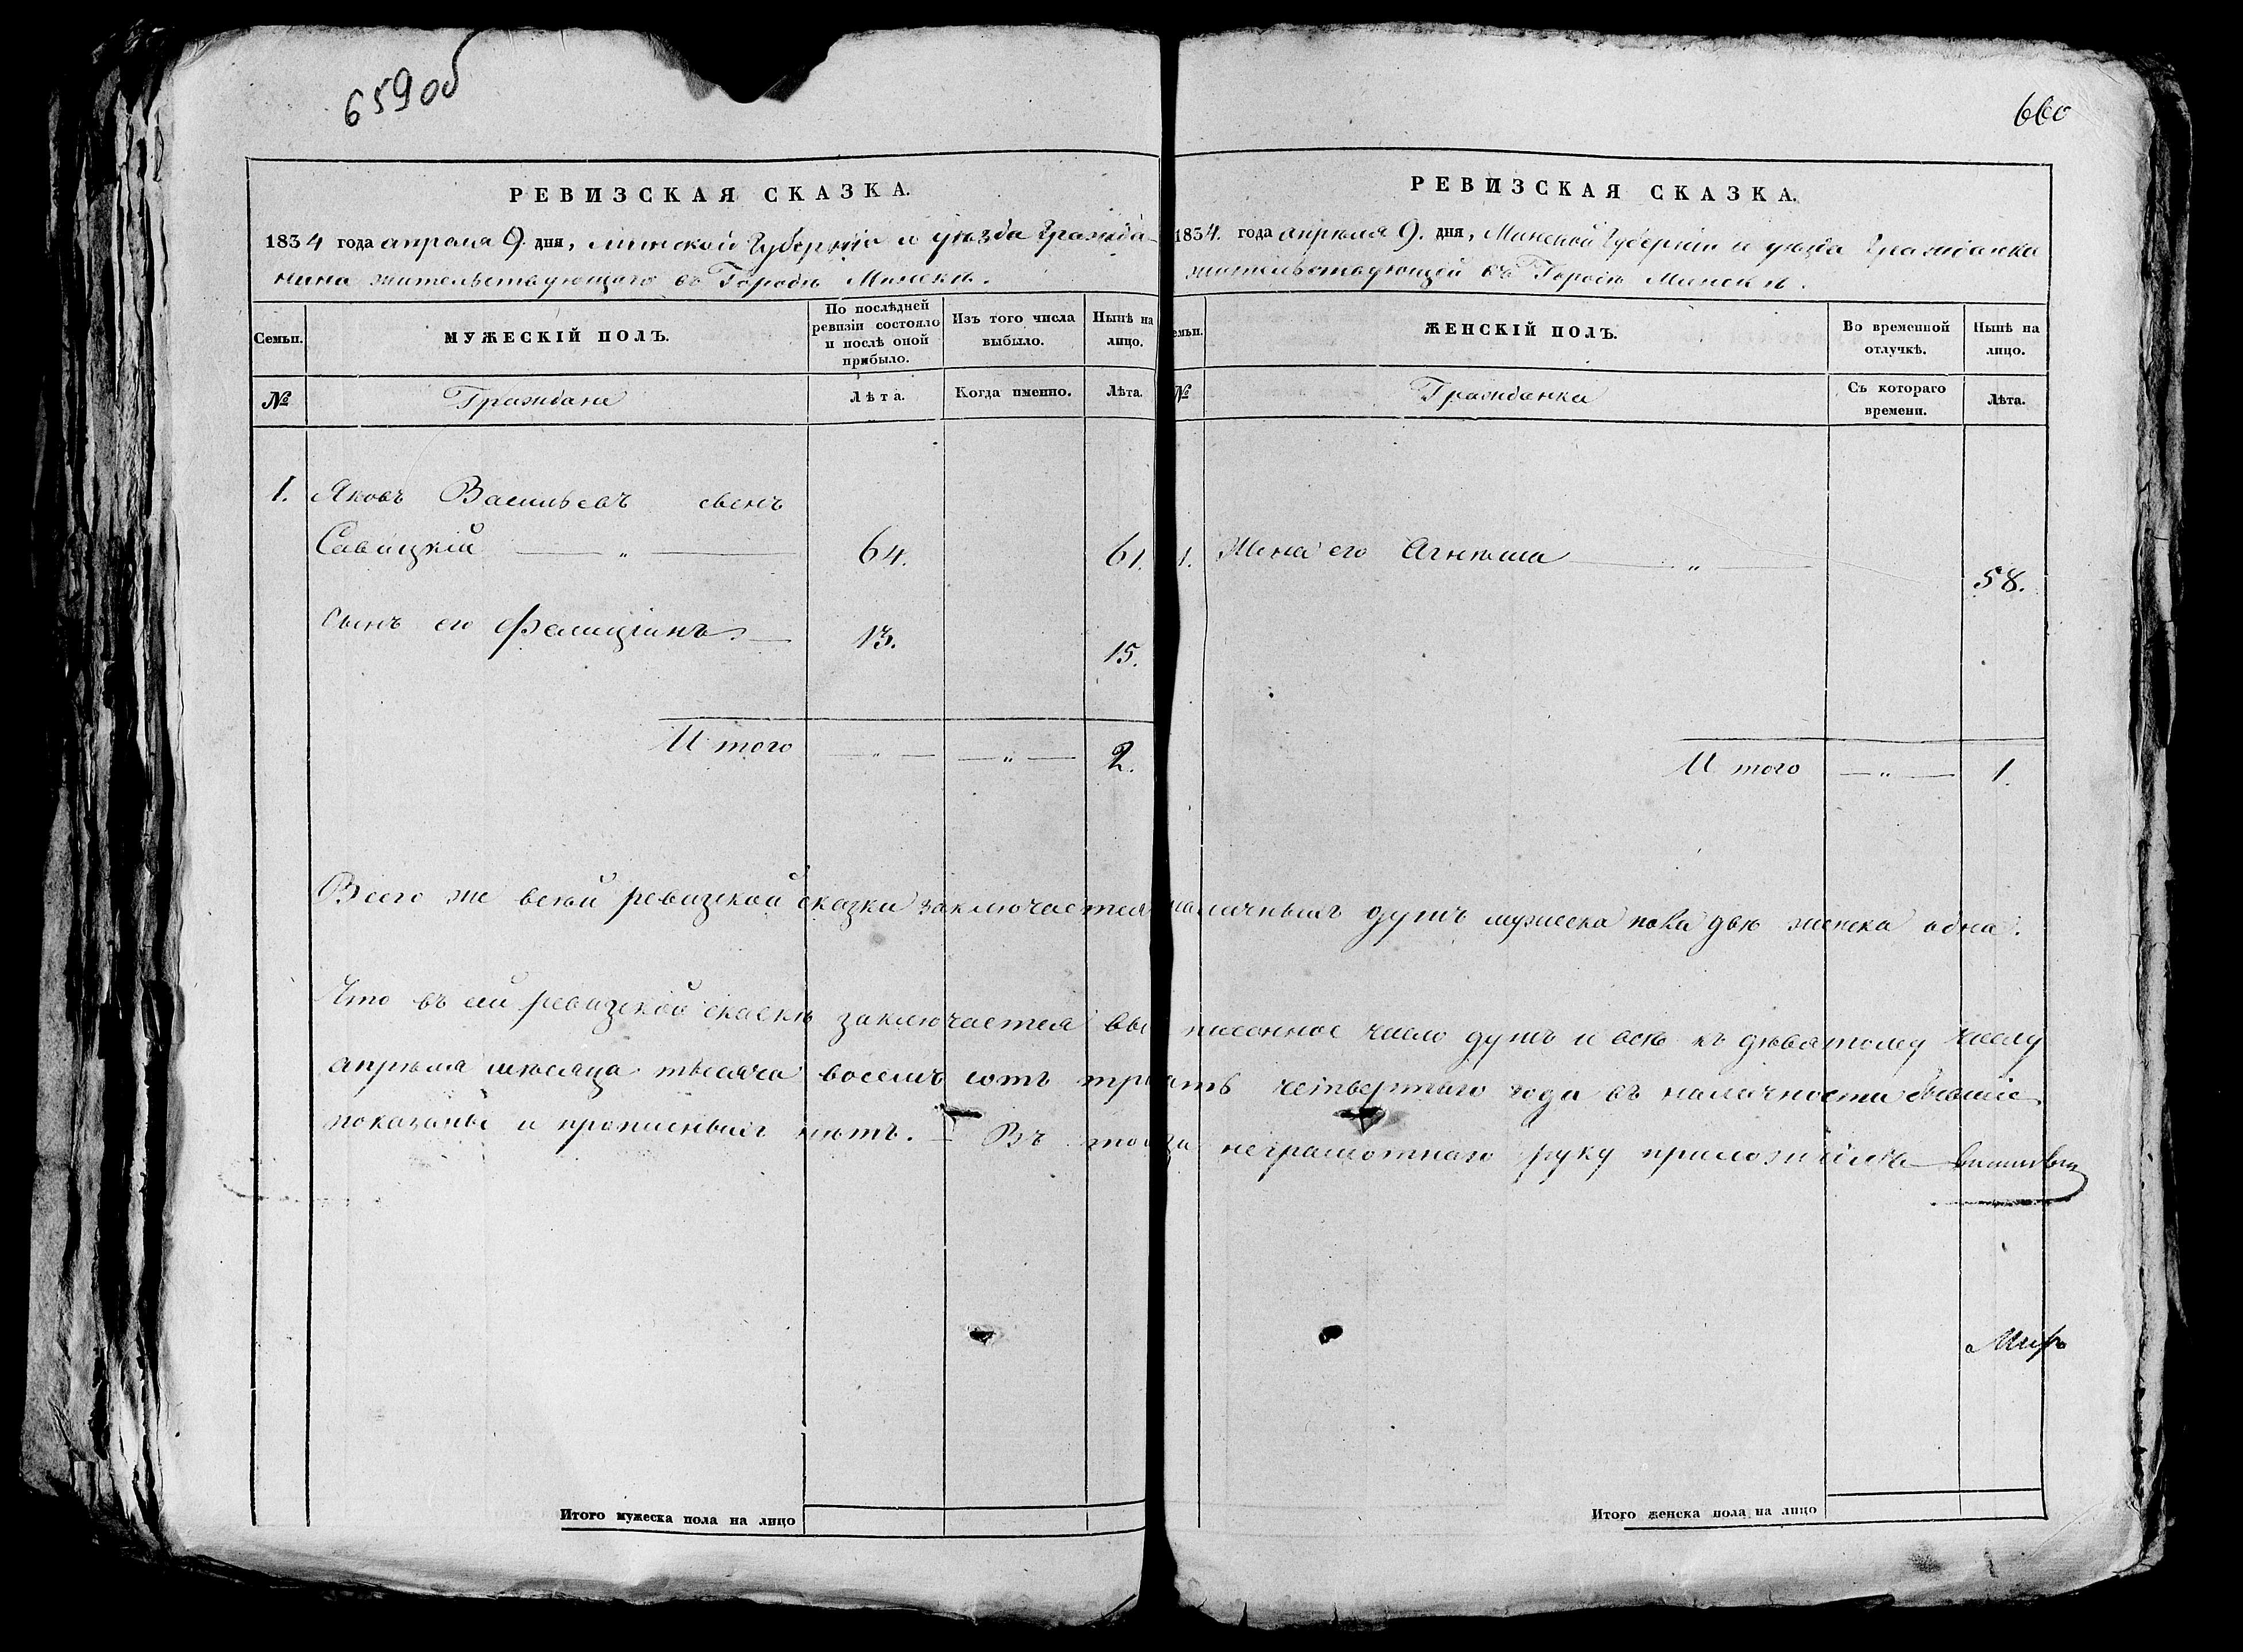 659об
660
РЕВИЗСКАЯ СКАЗКА.
1834 года апреля 9. дня, Минской Губерніи и уезда Гражда-
нина жительствующаго въ Городѣ Минскѣ.
Семьи.
МУЖЕСКІЙ ПОЛЪ.
По послѣдней ревизіи состояло и послѣ оной прибыло.
Изъ того числа выбыло.
Нынѣ на лицо.
№
Граждане
Лѣта.
Когда именно.
Лѣта.
1. Яковъ Васильевъ сынъ
Савицкій — „ — 64. 61.
Сынъ его Фелиціянъ. — 13. 15.
Итого — „ — — „ — 2.
РЕВИЗСКАЯ СКАЗКА.
1834. года апрѣля 9. дня, Минской Губерніи и уезда Гражданка
жительствующей въ Городѣ Минскѣ.
емьи.
ЖЕНСКІЙ ПОЛЪ.
Во временной отлучкѣ.
Нынѣ на лицо.
№
Гражданка
Съ котораго времени.
Лѣта.
1. Жена его Агнѣша — „ — 58.
Итого — „ — 1.
Всего же всей ревизской сказки заключается наличныхъ душъ мужеска пола двѣ женска одна.
Что въ сей ревизской сказкѣ заключается вы писанное число душъ и всѣ къ девятому числу
апрѣля мѣсяца тысяча восемь сотъ трить четвертаго года въ наличности бывшіе
показаны и прописныхъ нѣтъ. — Въ неграмотнаго руку приложилъ
Мир
Итого мужеска пола на лицо
Итого женска пола на лицо